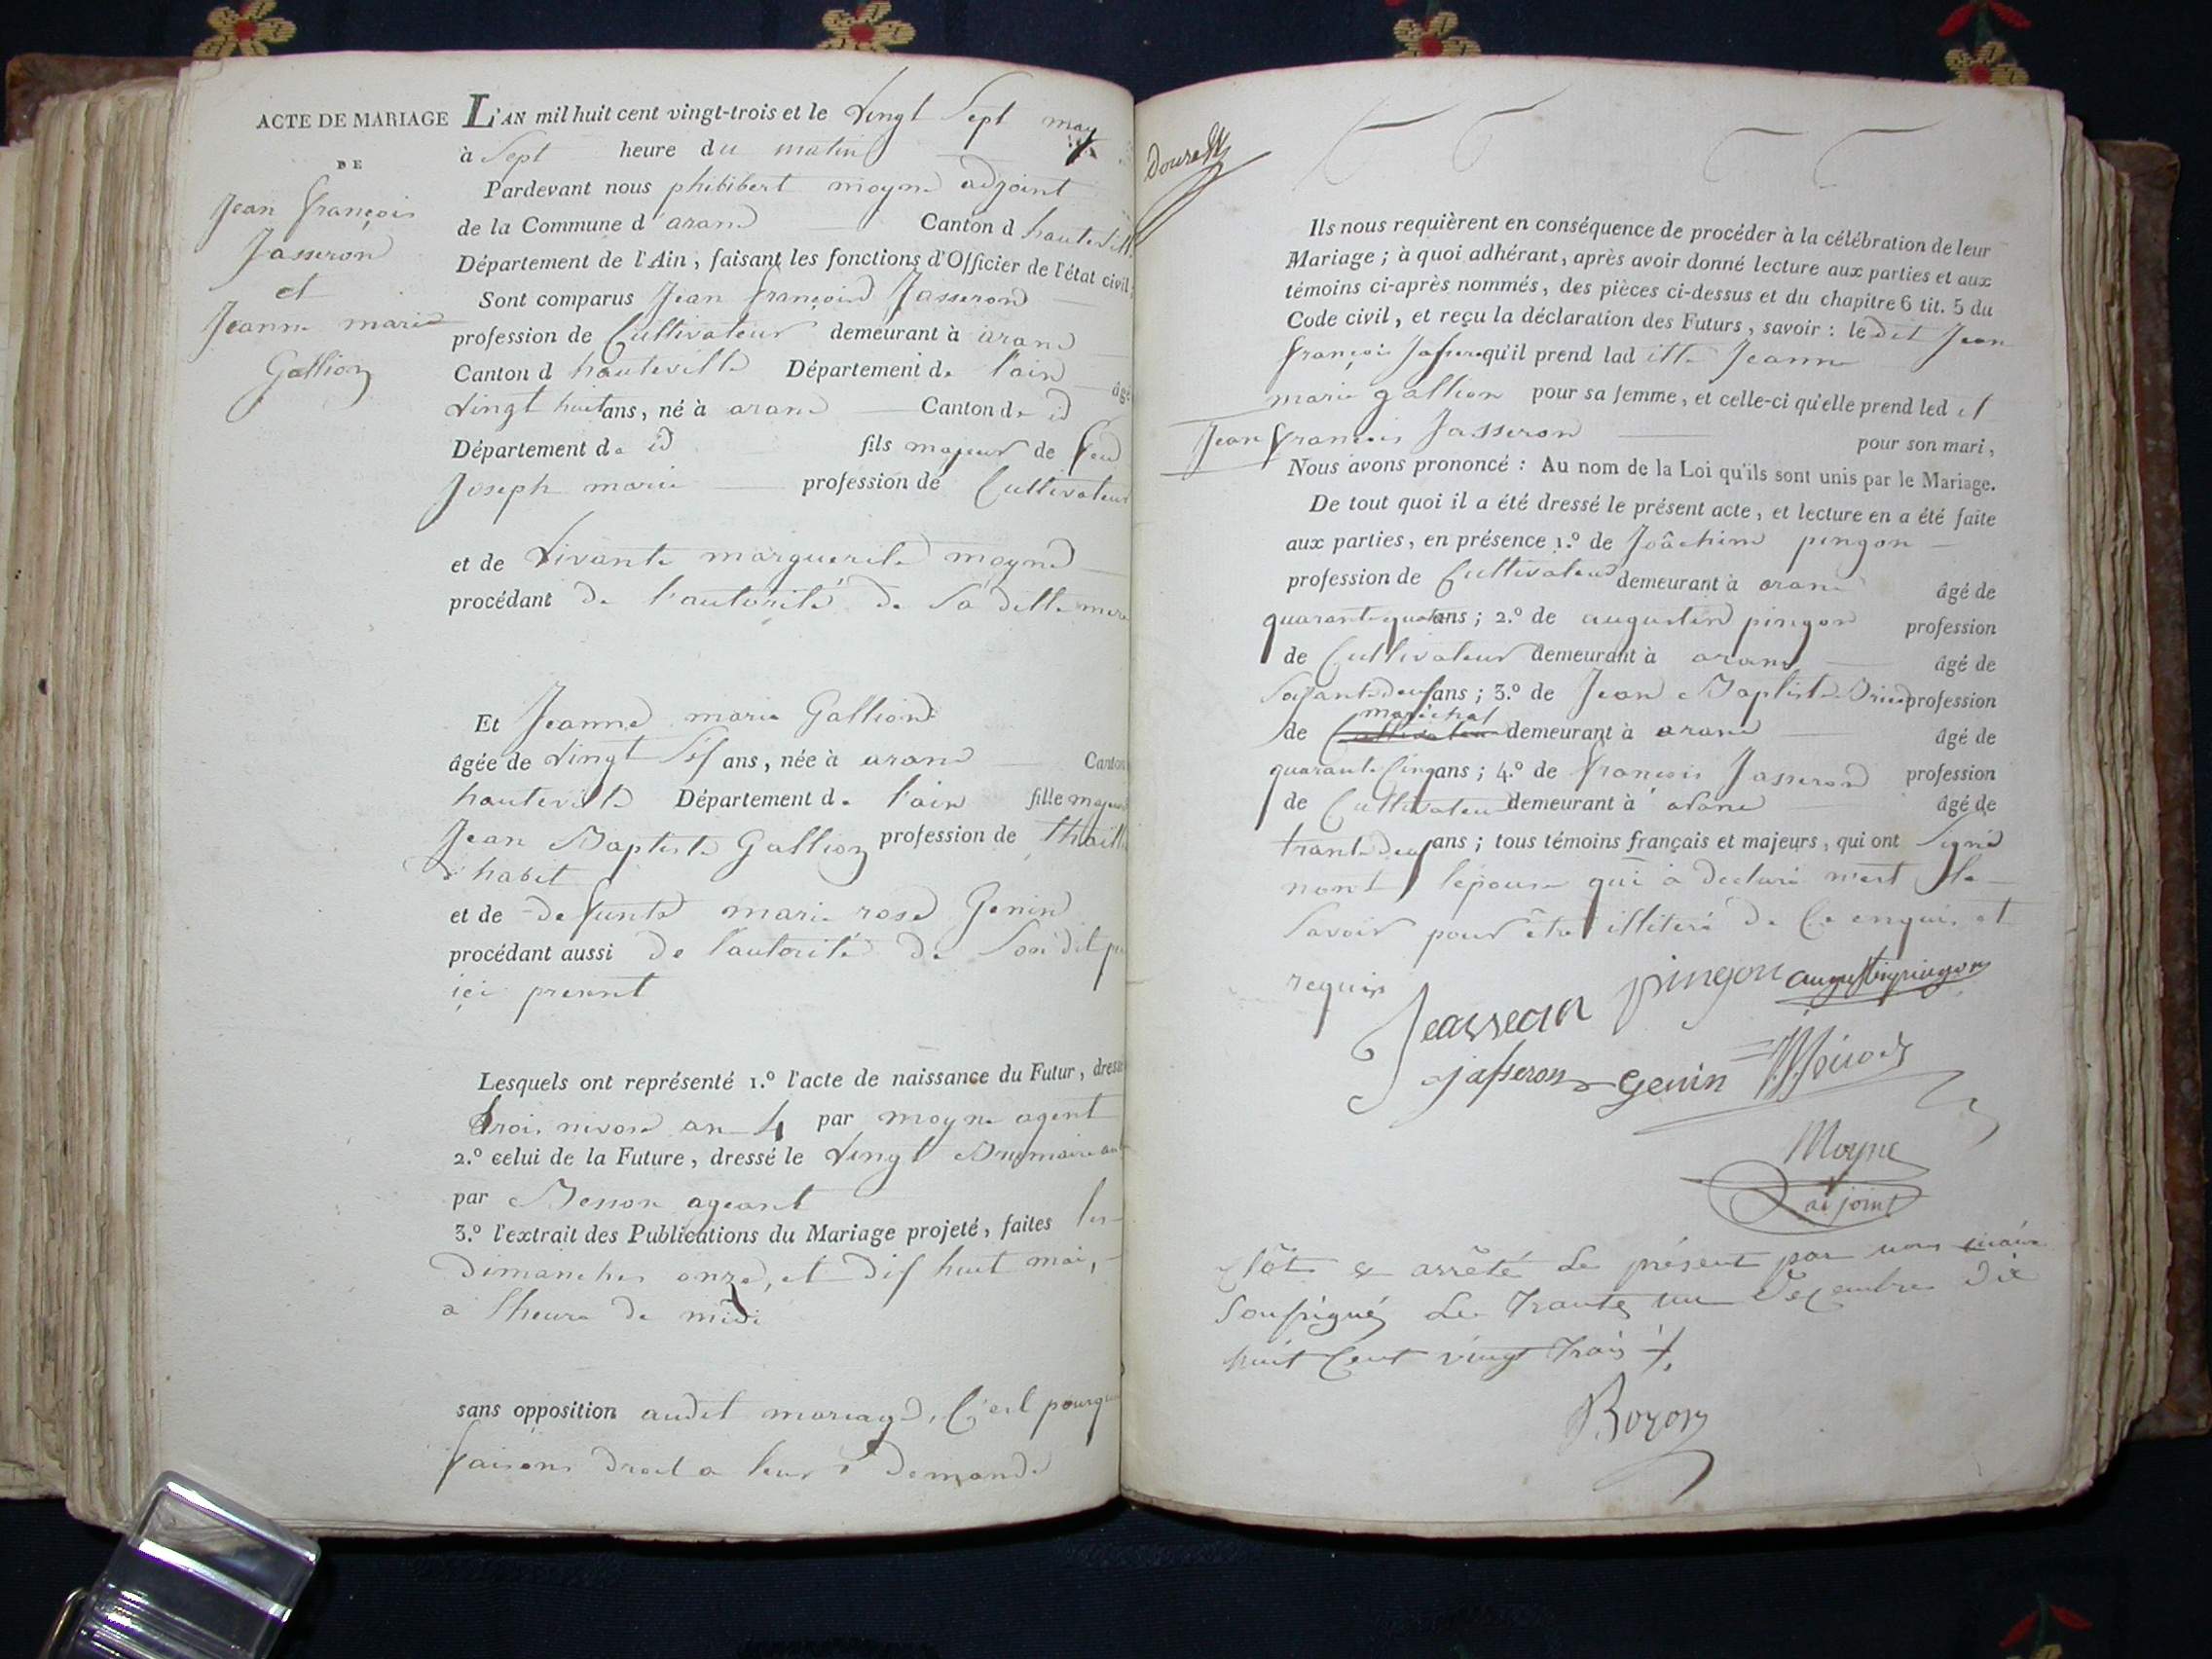 ACTE DE MARIAGE
DE
Jean françois
Jasseron
et
Jeanne marie
Gallion
L'AN mil huit cent vingt-trois et le vingt Sept may
à Sept heure du matin
Pardevant nous phibibert moyne adjoint
de la Commune d'arane Canton d hauteville
Département de l'Ain, faisant les fonctions d'Officier de l'état civil,
Sont comparus Jean françois Jasseron
profession de Cultivateur demeurant à arane
Canton d hauteville Département de l'ain âgé
vingt huit ans, né à arane Canton de id
Département de id fils majeur de feu
Joseph marie profession de Cultivateur
et de vivante marguerite moyne
procédant de l'autorité de Sa ditte mere
Et Jeanne marie Gallion
âgée de vingt six ans, née à arane Canton
hauteville Département de l'ain fille majeure
Jean Baptiste Gallion profession de thaille
d'habit
et de defunte marie rose Genin
procédant aussi de l'autorité de Son dit
içi present
Lesquels ont représenté 1.º l'acte de naissance du Futur, dressé
trois nivose an 4 par moyne agent
2.º celui de la Future, dressé le vingt Brumaire an
par Besson ageant
3.º l'extrait des Publications du Mariage projeté, faites les
dimanches onze, et dix huit mai,
a l'heure de midi
sans opposition audit mariage, C'est pourquoi
faisons droit a leur demande
Ils nous requièrent en conséquence de procéder à la célébration de leur
Mariage ; à quoi adhérant, après avoir donné lecture aux parties et aux
témoins ci-après nommés, des pièces ci-dessus et du chapitre 6 tit. 5 du
Code civil, et reçu la déclaration des Futurs, savoir : le dit Jean
françois Jasseron qu'il prend lad itte Jeanne
marie gallion pour sa femme, et celle-ci qu'elle prend led it
Jean françois Jasseron pour son mari,
Nous avons prononcé : Au nom de la Loi qu'ils sont unis par le Mariage.
De tout quoi il a été dressé le présent acte, et lecture en a été faite
aux parties, en présence 1.º de Joâchim pingon
profession de Cultivateur demeurant à arane âgé de
quarante quatre ans ; 2.º de augustin pingon profession
de Cultivateur demeurant à arane âgé de
Soixante deux ans ; 3.º de Jean Baptiste profession
maréchal
de Cultivateur demeurant à arane âgé de
quarante Cinq ans ; 4.º de françois Jasseron profession
de Cultivateur demeurant à arane âgé de
trante deux ans ; tous témoins français et majeurs, qui ont Signé
nont l'épouse qui à declaré n'est le
Savoir pour être illiteré de Ce enquis et
requis
pingon augustin pingon
jasseron Genin
Moyne
adjoint
Clôt & arrêté le présent par nous maire
Soussigné le trante un Decembre dix
huit Cent vingt trois
Bozon